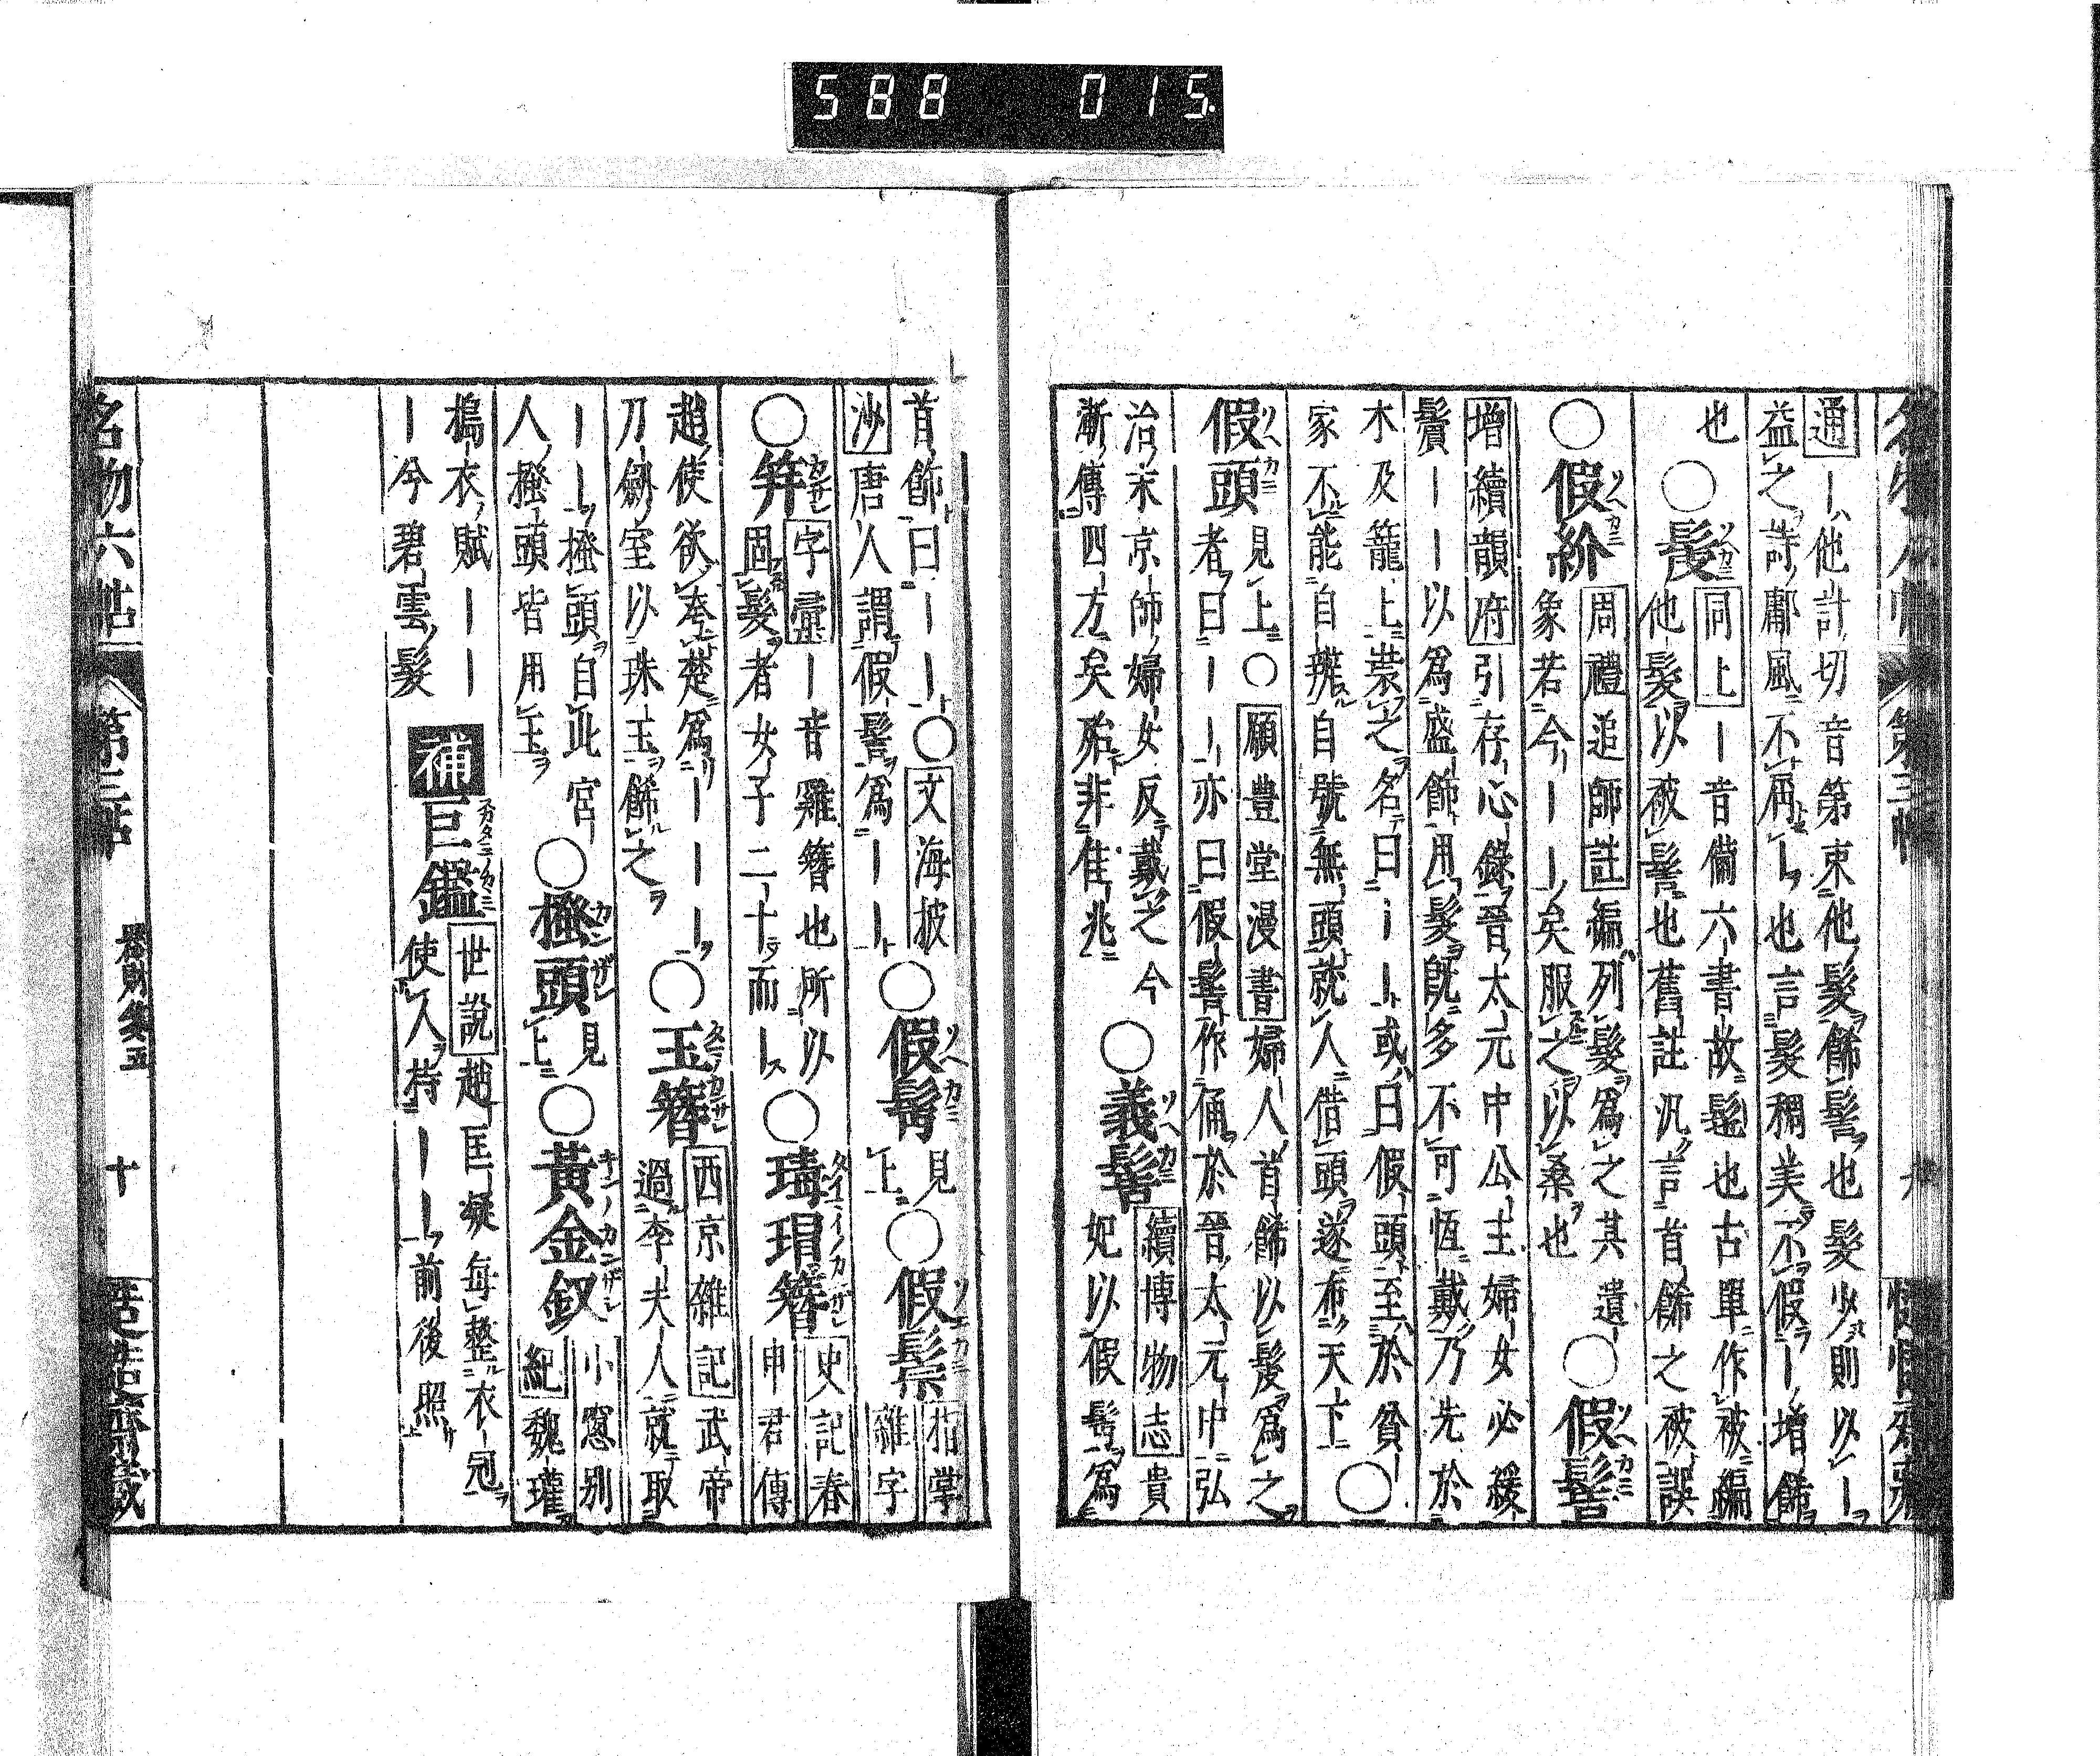 588 015.
通｜他計切音第束他髮飾髻也髮少則以｜
益之詩鄘風不屑｜也言髮稠美不假｜增飾
也○髲同上｜音備六書故髲也古單作被編
他髮以被髻也舊註汎言首飾之被誤
○假紒周禮追師註編列髮爲之其遺
象若今｜｜矣服之以桑也○假髻
增續韻府引存心錄晉太元中公主婦女必緩
鬢｜｜以爲盛飾用髮既多不可恆戴乃先於
木及籠上裝之名曰｜｜或曰假頭至於貧
家不能自辦自號無頭就人借頭遂布天下○
假頭見上○願豊堂漫書婦人首飾以髮爲之
者曰｜｜亦曰假髻作俑於晉太元中弘
治末京師婦女反戴之今
漸傳四方矣殆非佳兆○義髻續博物志貴
妃以假髻爲
首飾曰｜｜○文海披
沙唐人謂假髻爲｜｜○假髢見上○假鬃指掌
雜字
○笄字彙｜音雞簪也所以
固髮者女子二十而｜○瑇瑁簪史記春
申君傳
趙使欲夸楚爲｜｜｜
刀劍室以珠玉飾之○玉簪西京雜記武帝
過李夫人就取
｜｜搔頭自此宮
人搔頭皆用玉○搔頭見上○黃金釵小窓别
紀魏瓘
搗衣賦｜｜
｜兮碧雲髮補巨鑑世説趙匡凝每整衣冠
使人持｜｜前後照
名物六帖 第三帖 器財箋五 十